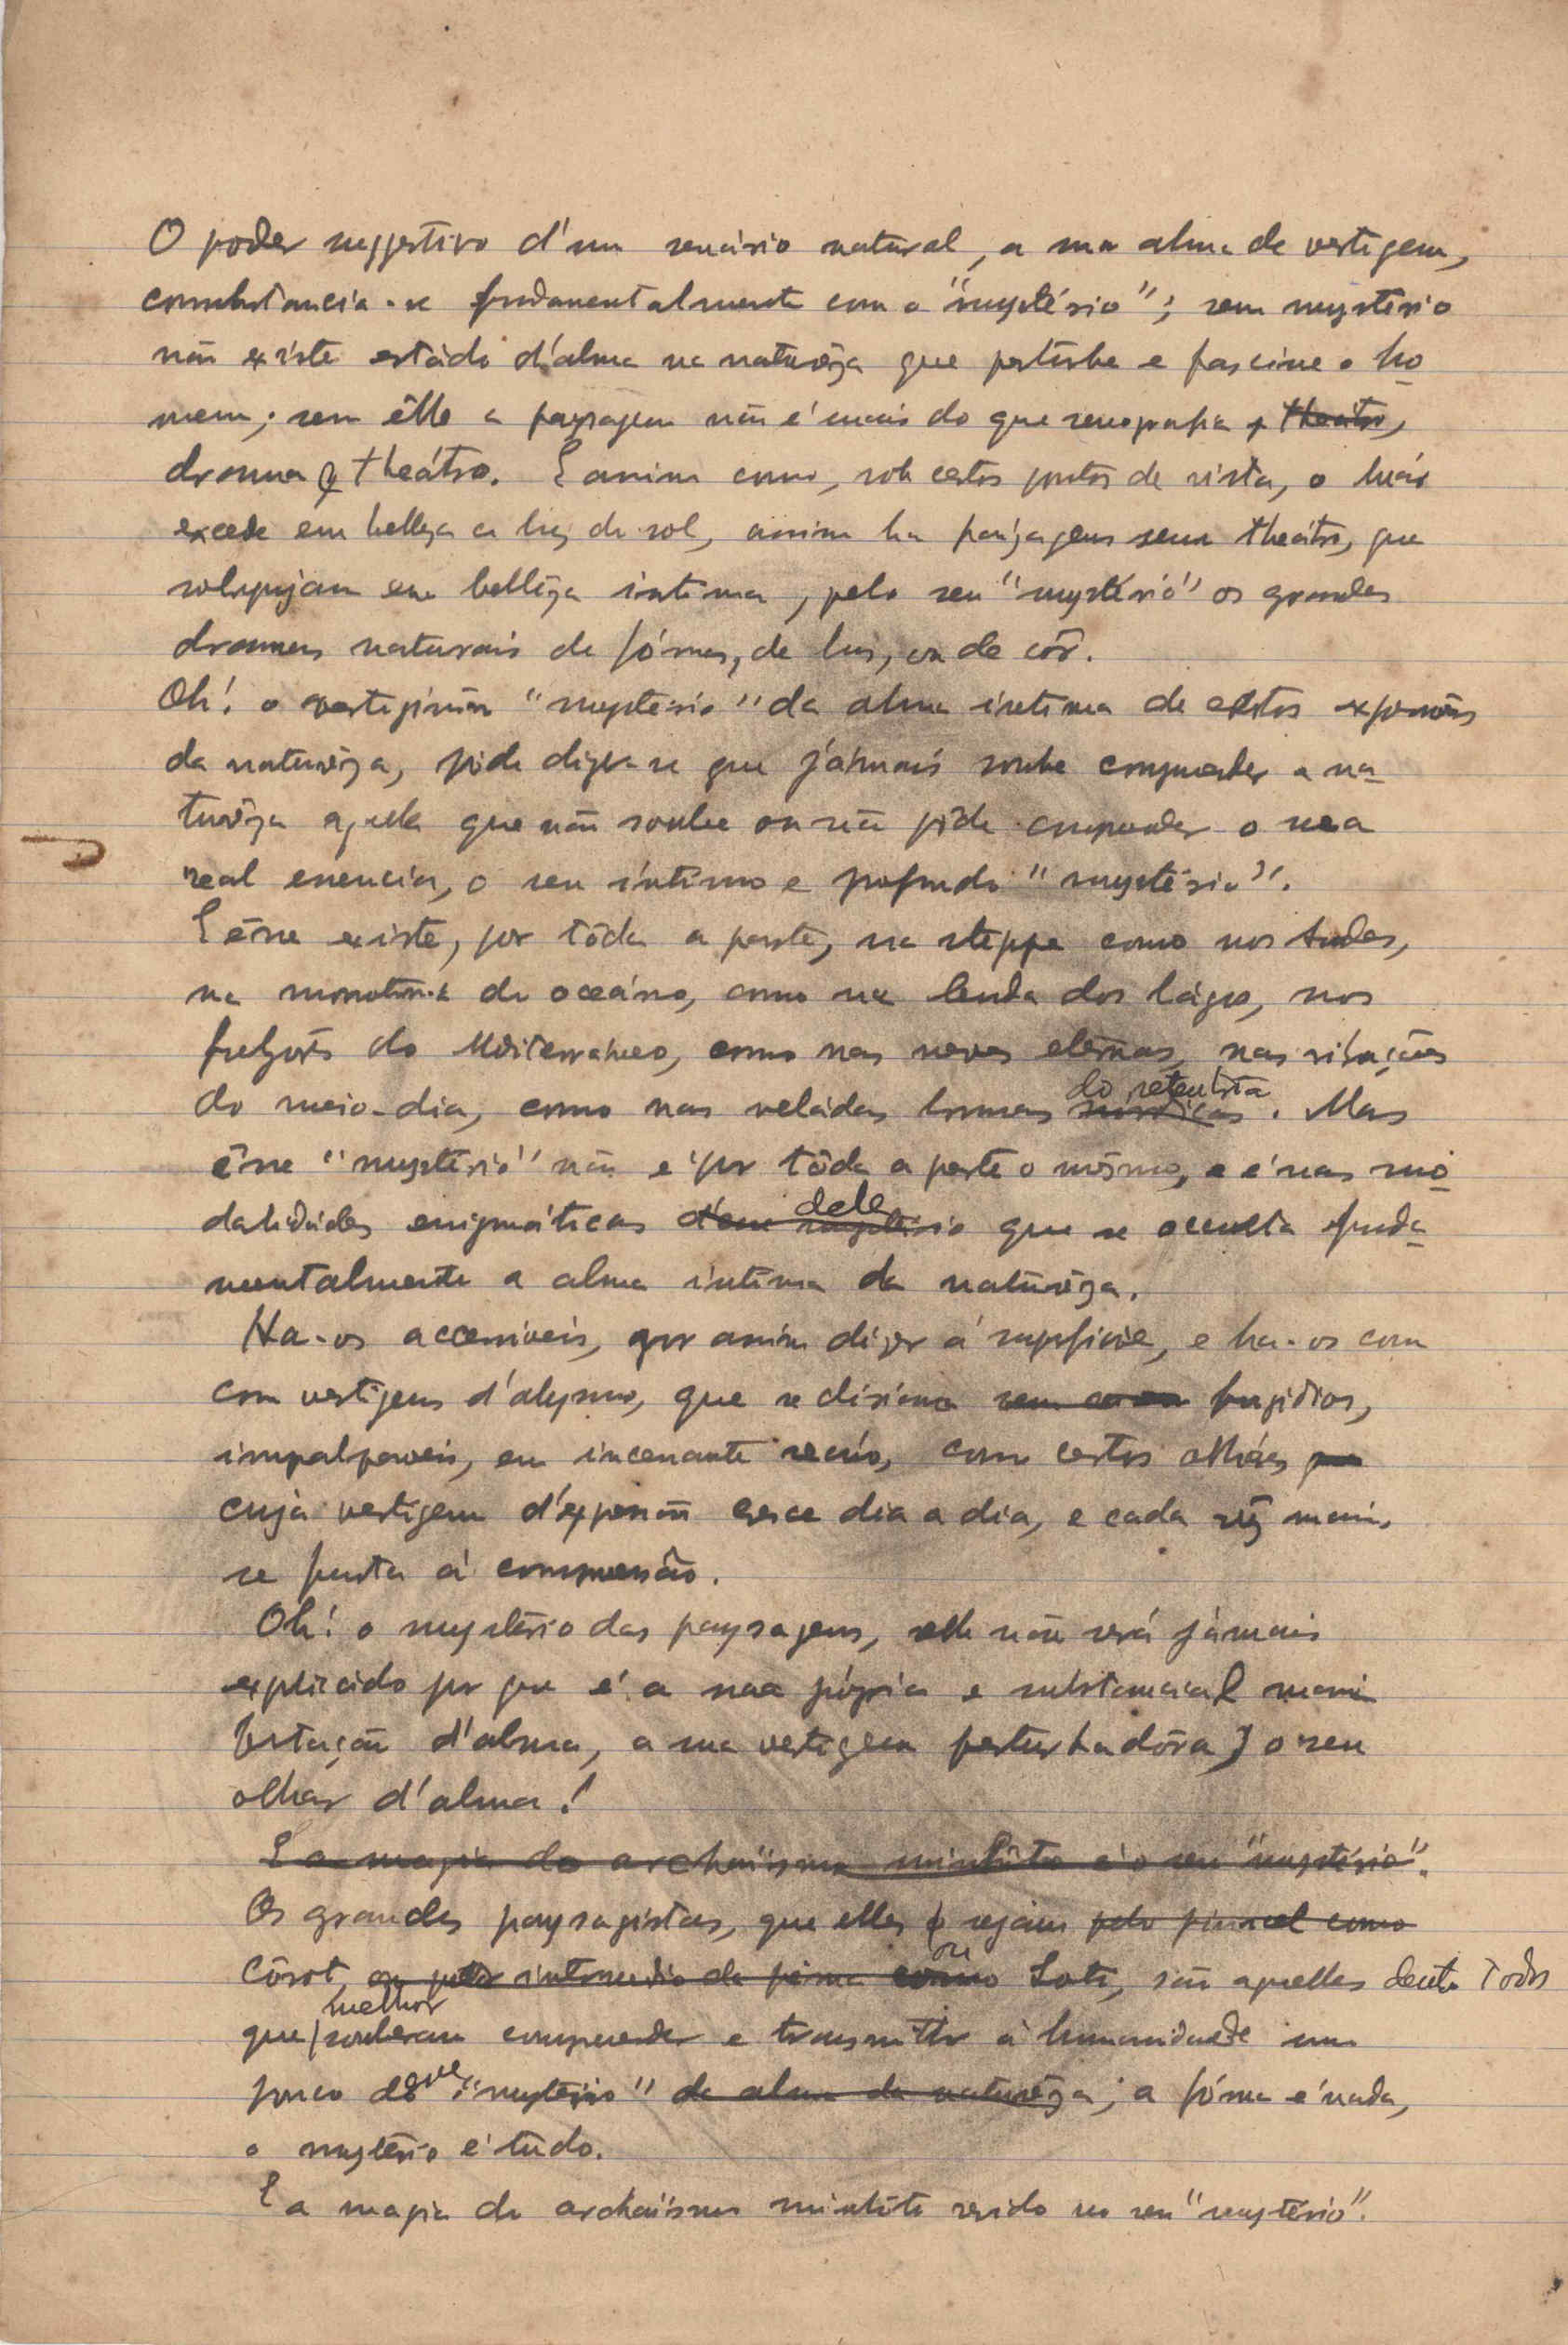 O poder suggestivo d'um scenário natural, a sua alma de vertigem,
consubstancia-se fundamentalmente com o "mystério"; sem mystério
não existe estádo d'alma na naturêza que pertúrbe e fascine o ho
mem; sem êlle a paysagem não é mais do que scenografia, theátro,
drama & theátro. E assim como, sob certos pontos de vista, o luár
excede em belleza a luz do sol, assim ha paizagens sem theátro, que
sobrepujam em bellêza íntima, pelo seu "mystério" os grandes
dramas naturais de fórmas, de luz, ou de côr.
Oh! o vertiginôso "mysterio" da alma íntima de certos expressões
da naturêza, póde dizer-se que jámais soube comprender a na
turêza aquelle que não soube ou não pôde comprender a sua
real essencia, o seu íntimo e profundo "mystério".
E êsse existe, por tôda a parte, na steppe como nos Andes,
na monotonia do oceáno, como na lenda dos lágos, nos
fulgôres do Mediterraneo, como nas neves etérnas, nas vibrações
do meio-dia, como nas veládas brumas do setentrião. Mas
êsse "mystério" não é por tôda a parte o mêsmo, e é nas mo
dalidádes enigmáticas d'esse mystério dele que se occulta funda
mentalmente a alma íntima da naturêza.
Ha-os accessiveis, por assim dizer á superficie, e ha-os com
com vertigens d'abysmo, que se disséma sem fugidios,
impalpaveis, em incessante recúo, como certos olháres
cuja vertigem d'expressão cresce dia a dia, e cada vêz mais,
se furta á compreensão.
Oh! o mystério das paysagens, elle não será jámais
explicádo por que é a sua própria e substancial mani
festação d'alma, a sua vertigem perturbadôra, o seu
olhar d'alma!
E a magia do archaïsmo minhôto é o seu "mystério".
Os grandes paysagistas, que elles sejam pelo pincel como
Córot, ou por intermedio da pena como ou Loti, são aquelles dentre todos
que melhor souberam comprender e transmittir á humanidade um
pouco desse "mystério" da alma da naturêza; a fórma é nada,
o mystério é túdo.
E a magia do archaïsmo minhôto resíde no seu "mystério".